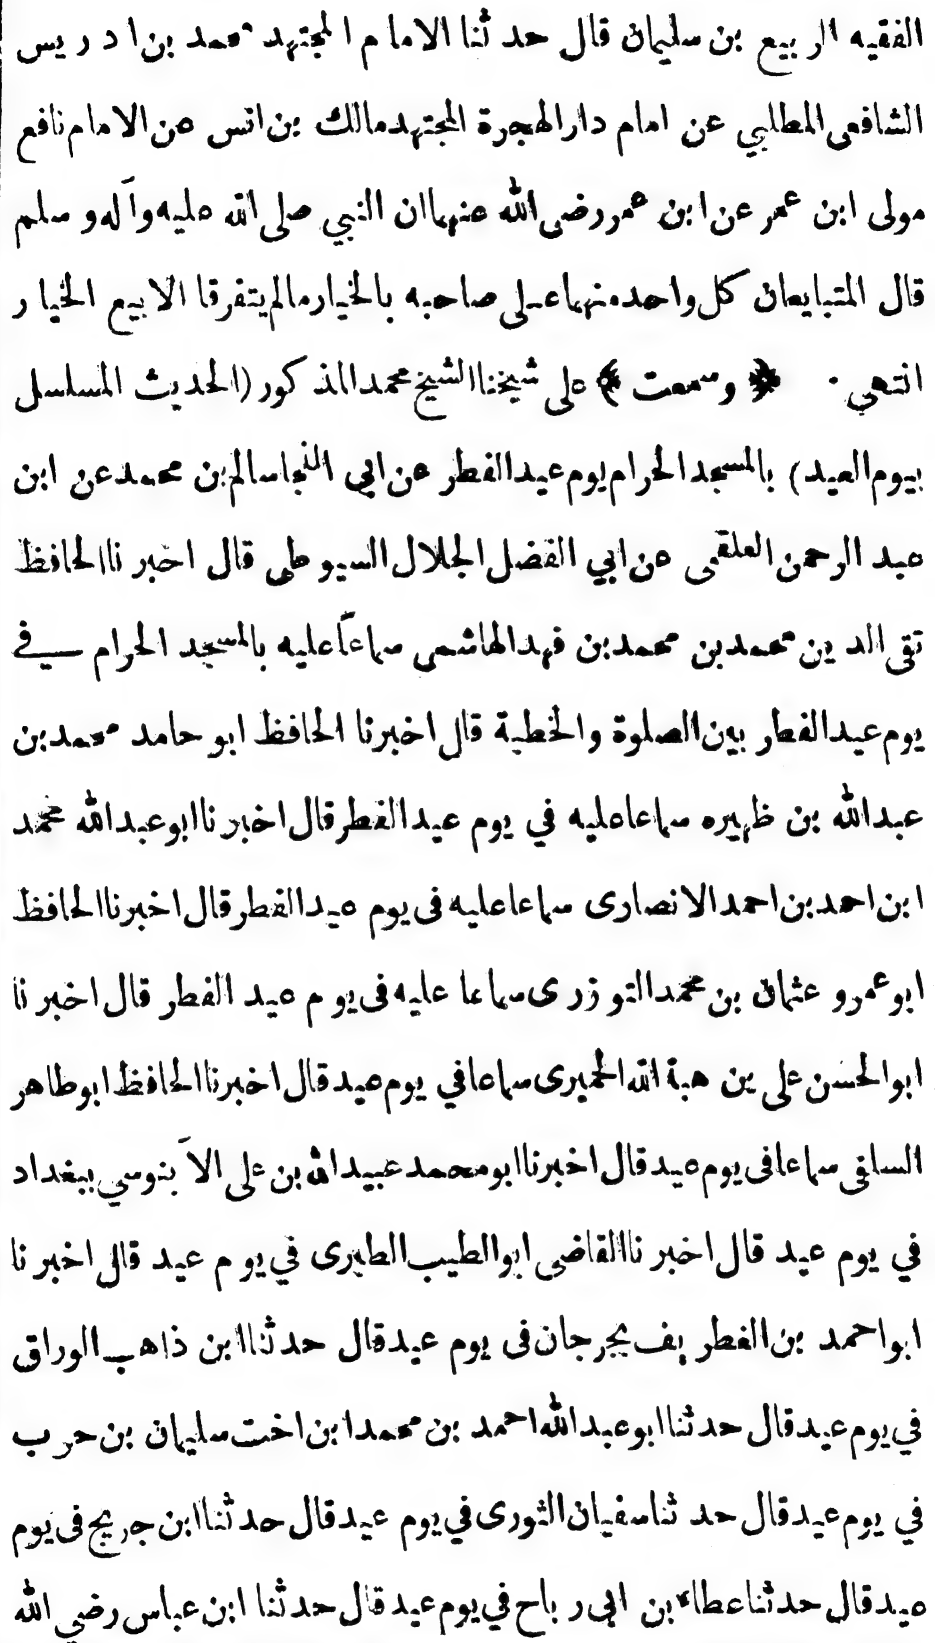 الفقيه الربيع بن سليمان قال حدثنا الامام المجتهد محمد بن ادريس
الشافعى المطلبي عن امام دار الهجرة المجتهد مالك بن انس عن الامام نافع
مولى ابن عمر عن ابن عمر رضى الله عنهما ان النبي صلى الله عليه وآله وسلم
قال المتبايعان كل واحد منهما على صاحبه بالخيار مالم يتفرقا الا بيع الخيار
انتهي . ﴿ وسمعت ﴾ على شيخنا الشيخ محمد المذكور (الحديث المسلسل
بيوم العيد) بالمسجد الحرام يوم عيد الفطر عن ابي النجا سالم بن محمد عن ابن
عبد الرحمن العلقمى عن ابي الفضل الجلال السيوطى قال اخبرنا الحافظ
تقى الدين محمد بن محمد بن فهد الهاشمى سماعاً عليه بالمسجد الحرام في
يوم عيد الفطر بين الصلوة والخطبة قال اخبرنا الحافظ ابو حامد محمد بن
عبد الله بن ظهيره سماعا عليه في يوم عيد الفطر قال اخبرنا ابو عبد الله محمد
ابن احمد بن احمد الانصارى سماعا عليه فى يوم عيد الفطر قال اخبرنا الحافظ
ابو عمرو عثمان بن محمد التوزرى سماعا عليه فى يوم عيد الفطر قال اخبرنا
ابو الحسن على بن هبة الله الحميرى سماعا في يوم عيد قال اخبرنا الحافظ ابو طاهر
السلفى سماعا فى يوم عيد قال اخبرنا ابو محمد عبيد الله بن على الآبنوسي ببغداد
في يوم عيد قال اخبرنا القاضى ابو الطيب الطبرى في يوم عيد قال اخبرنا
ابو احمد بن الغطريف بجرجان فى يوم عيد قال حدثنا ابن ذاهب الوراق
في يوم عيد قال حدثنا ابو عبد الله احمد بن محمد ابن اخت سليمان بن حرب
في يوم عيد قال حدثنا سفيان الثورى في يوم عيد قال حدثنا ابن جريج فى يوم
عيد قال حدثنا عطاء بن ابى رباح في يوم عيد قال حدثنا ابن عباس رضي الله